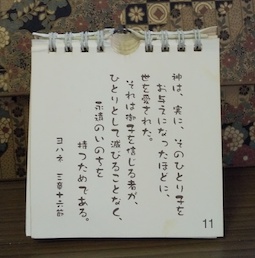 神は、実に、そのひとり子を
お与えになったほどに、
世を愛された。
それは御子を信じる者が、
ひとりとして滅びることなく、
永遠のいのちを
持つためである。
ヨハネ 三章十六節
11